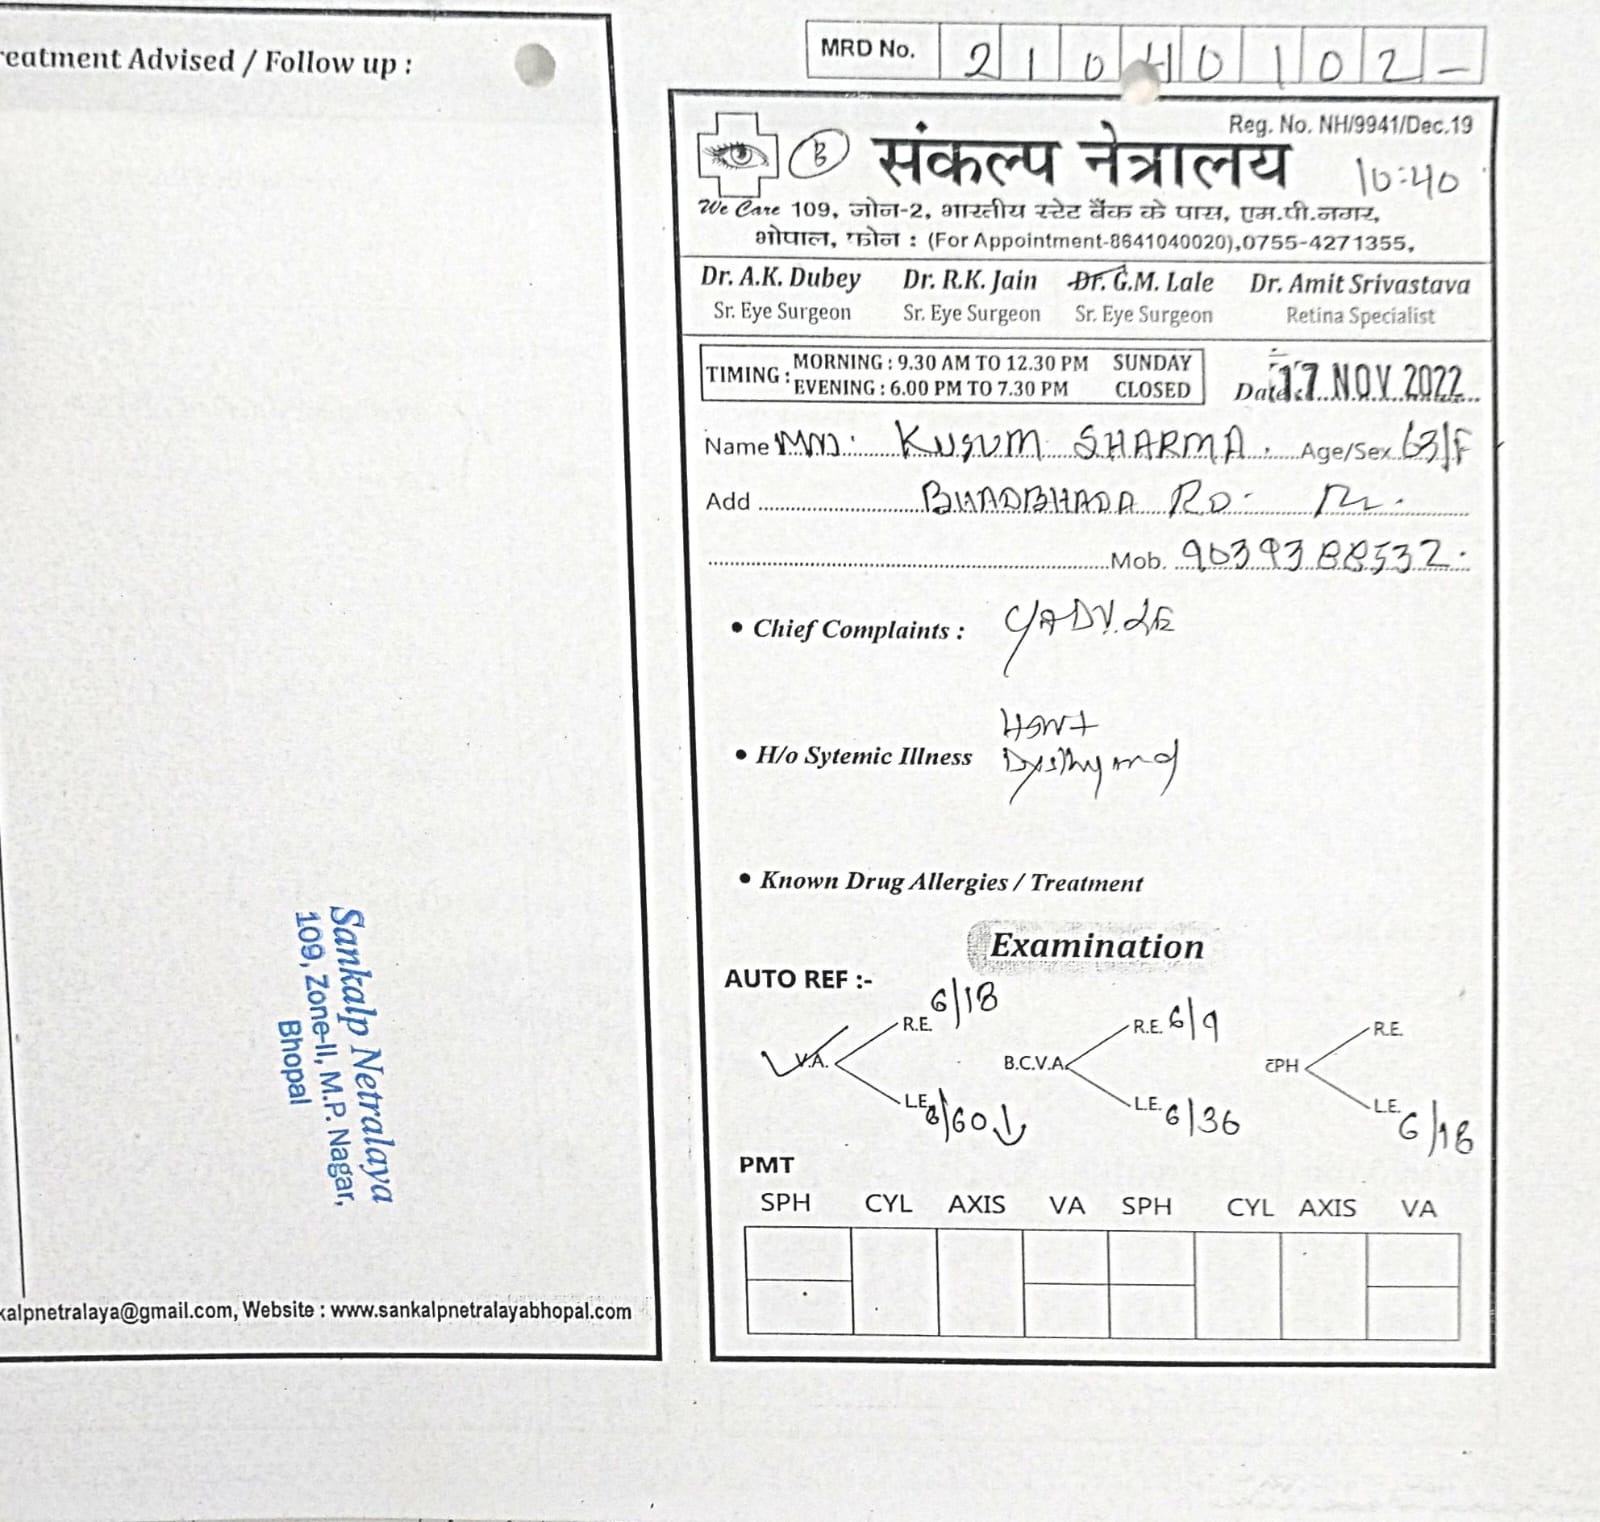 reatment Advised / Follow up :
Sankalp Netralaya
109, Zone-II, M.P. Nagar,
Bhopal
kalpnetralaya@gmail.com, Website : www.sankalpnetralayabhopal.com
MRD No. 2 1 0 4 0 1 0 2 -
Reg. No. NH/9941/Dec.19
B संकल्प नेत्रालय 10:40
We Care 109, जोन-2, भारतीय स्टेट बैंक के पास, एम.पी.नगर,
भोपाल, फोन : (For Appointment-8641040020),0755-4271355,
Dr. A.K. Dubey Dr. R.K. Jain Dr. G.M. Lale Dr. Amit Srivastava
Sr. Eye Surgeon Sr. Eye Surgeon Sr. Eye Surgeon Retina Specialist
TIMING : MORNING : 9.30 AM TO 12.30 PM SUNDAY
EVENING : 6.00 PM TO 7.30 PM CLOSED
Date 17 NOV 2022
Name KUSUM SHARMA. Age/Sex 63/F
Add BHADBHADA RD.
Mob. 9039388532.
• Chief Complaints : C/A DV. LE
• H/o Sytemic Illness
• Known Drug Allergies / Treatment
Examination
AUTO REF :-
V.A. R.E. 6/18 B.C.V.A. R.E. 6/9 PH R.E.
L.E. 6/60↓ L.E. 6/36 L.E. 6/18
PMT
SPH CYL AXIS VA SPH CYL AXIS VA